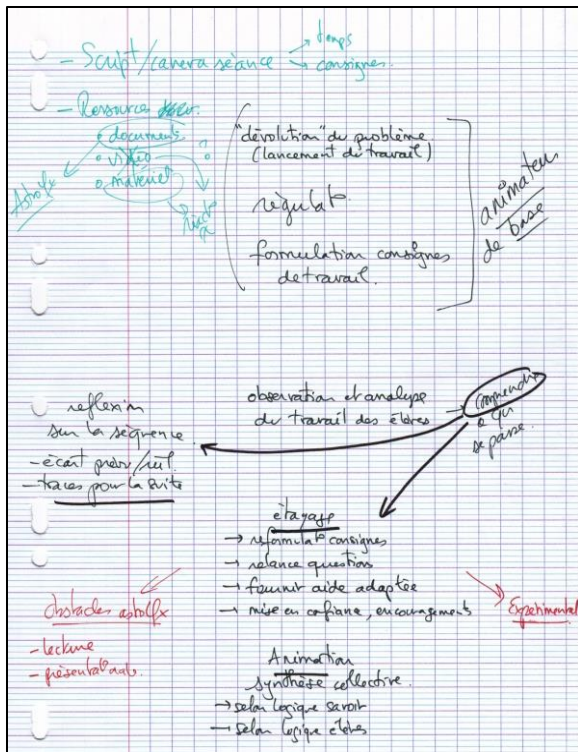 - Script/canera séance → temps
→ consignes
- Ressource
• documents
• vidéo
• matériel
Astrofx
"dévolution" du problème
(lancement du travail)
régulat°
formulation consignes
de travail.
animateur
de base
observation et analyse
du travail des élèves
→ comprendre
ce qui
se passe.
reflexion
sur la séquence.
- écart prévu/réél.
- traces pour la suite
étayage
→ reformulat° consignes
→ relance questions
→ fournir aide adaptée
→ mise en confiance, encouragements
obstacles astrofx
- lecture
- présentat°
Expérimental
Animation
synthèse collective.
→ selon logique savoir
→ selon logique élèves